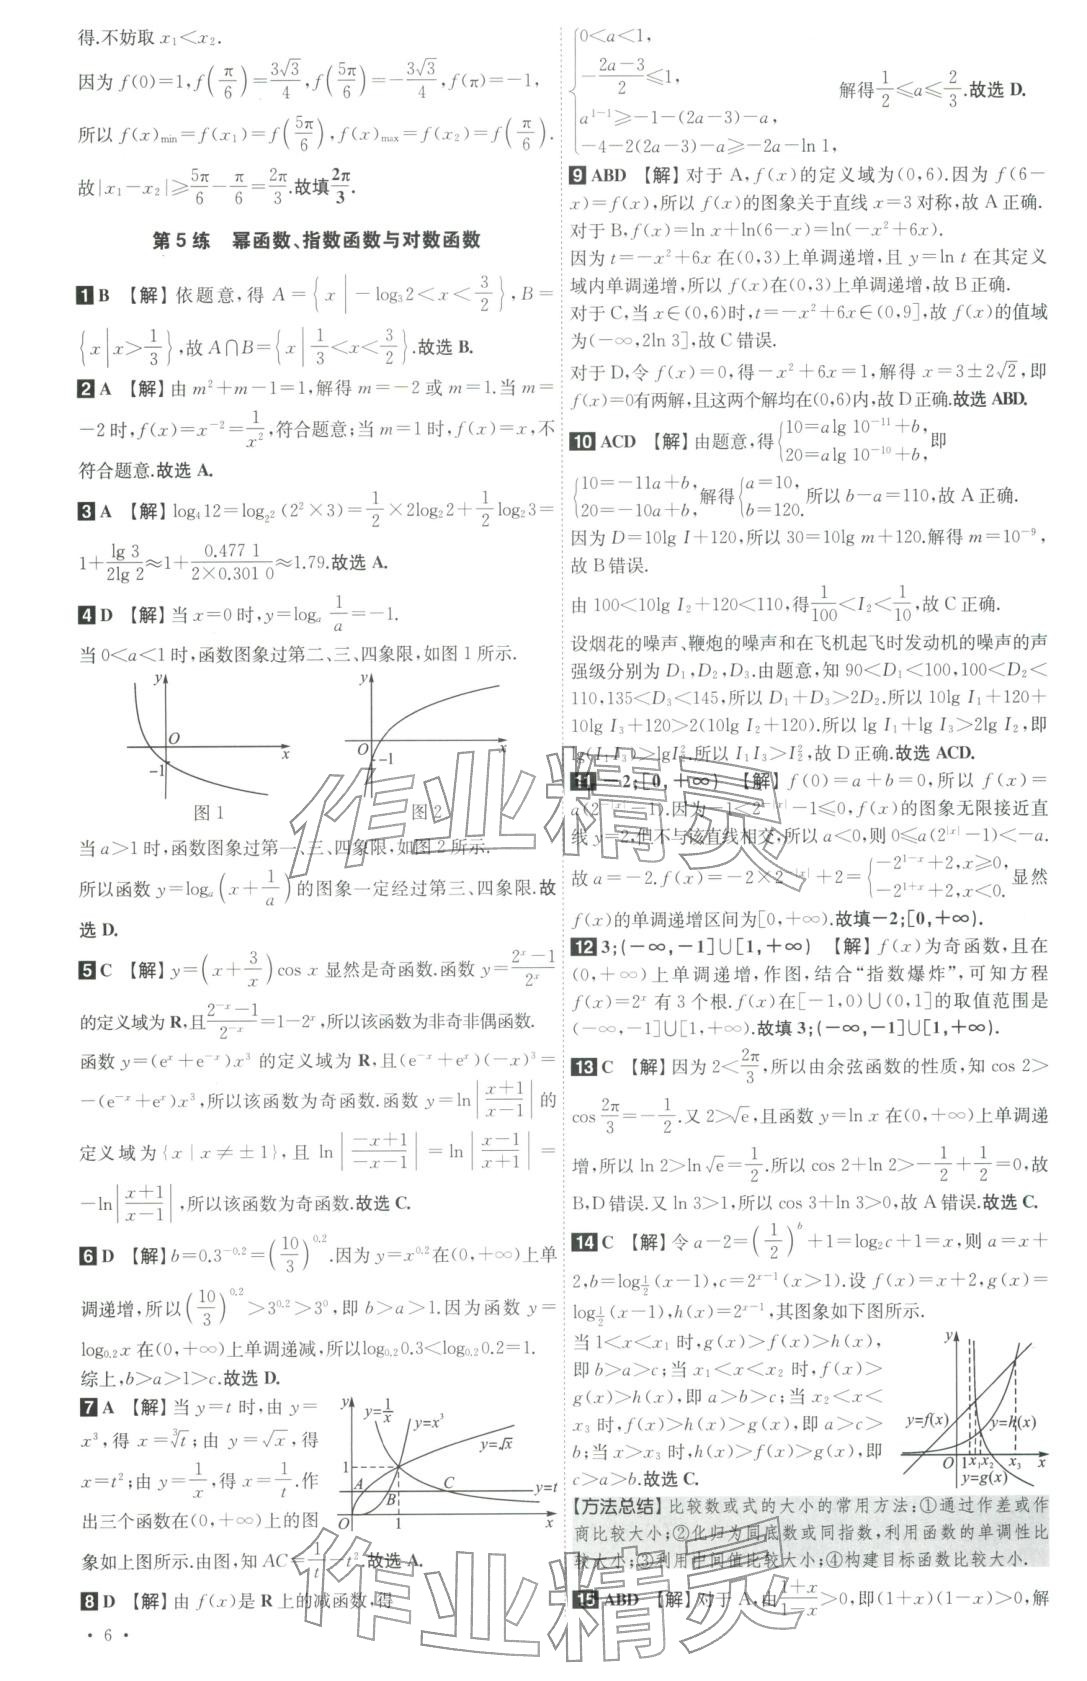 得.不妨取 x₁<x₂.
因为 f(0)=1,f(π/6)=3√3/4,f(5π/6)=-3√3/4,f(π)=-1,
所以 f(x)min=f(x₁)=f(5π/6),f(x)max=f(x₂)=f(π/6).
故|x₁-x₂|≥5π/6-π/6=2π/3.故填2π/3.
第 5 练 幂函数、指数函数与对数函数
1 B 【解】依题意,得 A={x|-log₃2<x<3/2},B=
{x|x>1/3},故 A∩B={x|1/3<x<3/2}.故选 B.
2 A 【解】由 m²+m-1=1,解得 m=-2 或 m=1.当 m=
-2 时,f(x)=x⁻²=1/x²,符合题意;当 m=1 时,f(x)=x,不
符合题意.故选 A.
3 A 【解】log₄12=log_{2²}(2²×3)=1/2×2log₂2+1/2log₂3=
1+lg 3/2lg 2≈1+0.477 1/2×0.301 0≈1.79.故选 A.
4 D 【解】当 x=0 时,y=logₐ 1/a=-1.
当 0<a<1 时,函数图象过第二、三、四象限,如图 1 所示.
y O x -1
y O x -1
图 1 图 2
当 a>1 时,函数图象过第一、三、四象限,如图 2 所示.
所以函数 y=logₐ(x+1/a)的图象一定经过第三、四象限.故
选 D.
5 C 【解】y=(x+3/x)cos x 显然是奇函数.函数 y=2ˣ-1/2ˣ
的定义域为 R,且2⁻ˣ-1/2⁻ˣ=1-2ˣ,所以该函数为非奇非偶函数.
函数 y=(eˣ+e⁻ˣ)x³ 的定义域为 R,且(e⁻ˣ+eˣ)(-x)³=
-(e⁻ˣ+eˣ)x³,所以该函数为奇函数.函数 y=ln|x+1/x-1|的
定义域为{x|x≠±1},且 ln|-x+1/-x-1|=ln|x-1/x+1|=
-ln|x+1/x-1|,所以该函数为奇函数.故选 C.
6 D 【解】b=0.3^{-0.2}=(10/3)^{0.2}.因为 y=x^{0.2}在(0,+∞)上单
调递增,所以(10/3)^{0.2}>3^{0.2}>3⁰,即 b>a>1.因为函数 y=
log_{0.2}x 在(0,+∞)上单调递减,所以log_{0.2}0.3<log_{0.2}0.2=1.
综上,b>a>1>c.故选 D.
7 A 【解】当 y=t 时,由 y=
x³,得 x=∛t;由 y=√x,得
x=t²;由 y=1/x,得 x=1/t.作
出三个函数在(0,+∞)上的图
y y=1/x y=x³ y=√x 1 A B C y=t O 1 x
象如上图所示.由图,知 AC=1/t-t².故选 A.
8 D 【解】由 f(x)是 R 上的减函数,得
• 6 •
{0<a<1,
-2a-3/2≤1,
a¹⁻¹≥-1-(2a-3)-a,
-4-2(2a-3)-a≥-2a-ln 1,
解得1/2≤a≤2/3.故选 D.
9 ABD 【解】对于 A,f(x)的定义域为(0,6).因为 f(6-
x)=f(x),所以 f(x)的图象关于直线 x=3 对称,故 A 正确.
对于 B,f(x)=ln x+ln(6-x)=ln(-x²+6x).
因为 t=-x²+6x 在(0,3)上单调递增,且 y=ln t 在其定义
域内单调递增,所以 f(x)在(0,3)上单调递增,故 B正确.
对于 C,当 x∈(0,6)时,t=-x²+6x∈(0,9],故 f(x)的值域
为(-∞,2ln 3],故 C错误.
对于 D,令 f(x)=0,得-x²+6x=1,解得 x=3±2√2,即
f(x)=0有两解,且这两个解均在(0,6)内,故 D正确.故选 ABD.
10 ACD 【解】由题意,得{10=alg 10⁻¹¹+b, 20=alg 10⁻¹⁰+b,即
{10=-11a+b, 20=-10a+b,解得{a=10, b=120.所以 b-a=110,故 A 正确.
因为 D=10lg I+120,所以 30=10lg m+120.解得 m=10⁻⁹,
故 B错误.
由 100<10lg I₂+120<110,得1/100<I₂<1/10,故 C 正确.
设烟花的噪声、鞭炮的噪声和在飞机起飞时发动机的噪声的声
强级分别为 D₁,D₂,D₃.由题意,知 90<D₁<100,100<D₂<
110,135<D₃<145,所以 D₁+D₃>2D₂.所以 10lg I₁+120+
10lg I₃+120>2(10lg I₂+120).所以 lg I₁+lg I₃>2lg I₂,即
lg(I₁I₃)>lgI₂².所以 I₁I₃>I₂²,故 D正确.故选 ACD.
11 -2;[0,+∞) 【解】f(0)=a+b=0,所以 f(x)=
a(2^{-|x|}-1).因为-1<2^{-|x|}-1≤0,f(x)的图象无限接近直
线 y=2,但不与该直线相交,所以 a<0,则 0≤a(2^{-|x|}-1)<-a.
故 a=-2.f(x)=-2×2^{-|x|}+2={-2^{1-x}+2,x≥0, -2^{1+x}+2,x<0. 显然
f(x)的单调递增区间为[0,+∞).故填-2;[0,+∞).
12 3;(-∞,-1]∪[1,+∞) 【解】f(x)为奇函数,且在
(0,+∞)上单调递增,作图,结合“指数爆炸”,可知方程
f(x)=2ˣ 有 3 个根.f(x)在[-1,0)∪(0,1]的取值范围是
(-∞,-1]∪[1,+∞).故填 3;(-∞,-1]∪[1,+∞).
13 C 【解】因为 2<2π/3,所以由余弦函数的性质,知 cos 2>
cos 2π/3=-1/2.又 2>√e,且函数 y=ln x 在(0,+∞)上单调递
增,所以 ln 2>ln√e=1/2.所以 cos 2+ln 2>-1/2+1/2=0,故
B,D错误.又 ln 3>1,所以 cos 3+ln 3>0,故 A错误.故选 C.
14 C 【解】令 a-2=(1/2)^b+1=log₂c+1=x,则 a=x+
2,b=log_{1/2}(x-1),c=2^{x-1}(x>1).设 f(x)=x+2,g(x)=
log_{1/2}(x-1),h(x)=2^{x-1},其图象如下图所示.
当 1<x<x₁ 时,g(x)>f(x)>h(x),
即 b>a>c;当 x₁<x<x₂ 时,f(x)>
g(x)>h(x),即 a>b>c;当 x₂<x<
x₃ 时,f(x)>h(x)>g(x),即 a>c>
b;当 x>x₃ 时,h(x)>f(x)>g(x),即
c>a>b.故选 C.
y y=f(x) y=h(x) O 1 x₁ x₂ x₃ x y=g(x)
【方法总结】比较数或式的大小的常用方法:①通过作差或作
商比较大小;②化归为同底数或同指数,利用函数的单调性比
较大小;③利用中间值比较大小;④构建目标函数比较大小.
15 ABD 【解】对于 A,由1+x/1-x>0,即(1+x)(1-x)>0,解
作业精灵
作业精灵